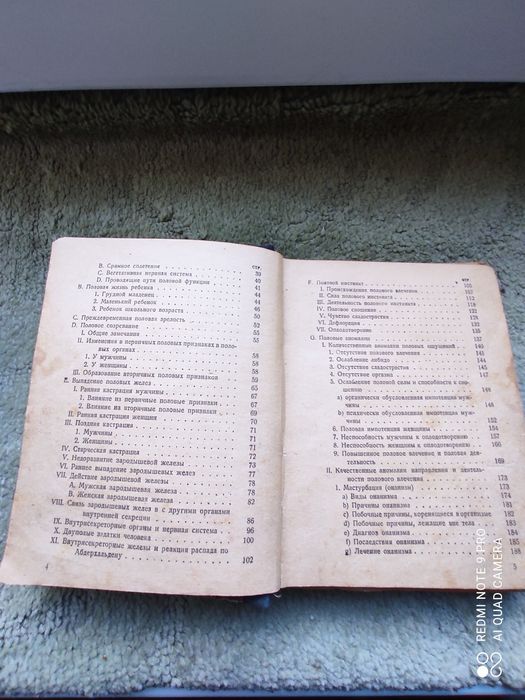 стр.
B. Срамное сплетение 39
C. Вегетативная нервная система 40
D. Проводящие пути половой функции 40
B. Половая жизнь ребенка 41
1. Грудной младенец 44
2. Маленький ребенок 44
3. Ребенок школьного возраста 46
C. Преждевременная половая зрелость 50
D. Половое созревание 52
I. Общие замечания 55
II. Изменения в первичных половых признаках в поло-
вых органах 58
1. У мужчины 58
2. У женщины 58
III. Образование вторичных половых признаков 59
E. Выпадение половых желез 65
I. Ранняя кастрация мужчины 67
1. Влияние на первичные половые признаки 67
2. Влияние на вторичные половые признаки 69
II. Ранняя кастрация женщин 70
III. Поздняя кастрация 71
1. Мужчины 71
2. Женщины 71
IV. Старческая кастрация 72
V. Недоразвитие зародышевой железы 73
VI. Раннее выпадение зародышевых желез 77
VII. Действие зародышевой железы 78
A. Мужская зародышевая железа 78
B. Женская зародышевая железа 82
VIII. Связь зародышевых желез в с другими органами
внутренней секреции 86
IX. Внутрисекреторные органы и нервная система 96
X. Двуполые задатки человека 100
XI. Внутрисекреторные железы и реакция распада по
Абдергальдену 102
4
стр.
F. Половой инстинкт 105
I. Происхождение полового влечения 107
II. Сила полового инстинкта 112
III. Деятельность полового инстинкта 118
IV. Половое сношение 124
V. Чувство сладострастия 132
VI. Дефлорация 135
VII. Оплодотворение 137
G. Половые аномалии 140
I. Количественные аномалии половых ощущений 145
1. Отсутствие полового влечения 145
2. Ослабление либидо 145
3. Отсутствие сладострастия 145
4. Отсутствие оргазма 147
5. Ослабление половой силы и способности к сно-
шению 148
a) органически обусловленная импотенция муж-
чины 148
b) психически обусловленная импотенция муж-
чины 152
6. Половая импотенция женщины 154
7. Неспособность мужчины к оплодотворению 157
8. Неспособность женщины к оплодотворению 166
9. Повышенное половое влечение и половая дея-
тельность 169
II. Качественные аномалии направления и деятельно-
сти полового влечения 173
1. Мастурбация (онанизм) 174
a) Виды онанизма 178
b) Причины онанизма 181
c) Побочные причины, коренящиеся в организме 182
d) Побочные причины, лежащие вне тела 183
e) Диагноз онанизма 184
f) Последствия онанизма 185
g) Лечение онанизма 188
REDMI NOTE 9 PRO
AI QUAD CAMERA